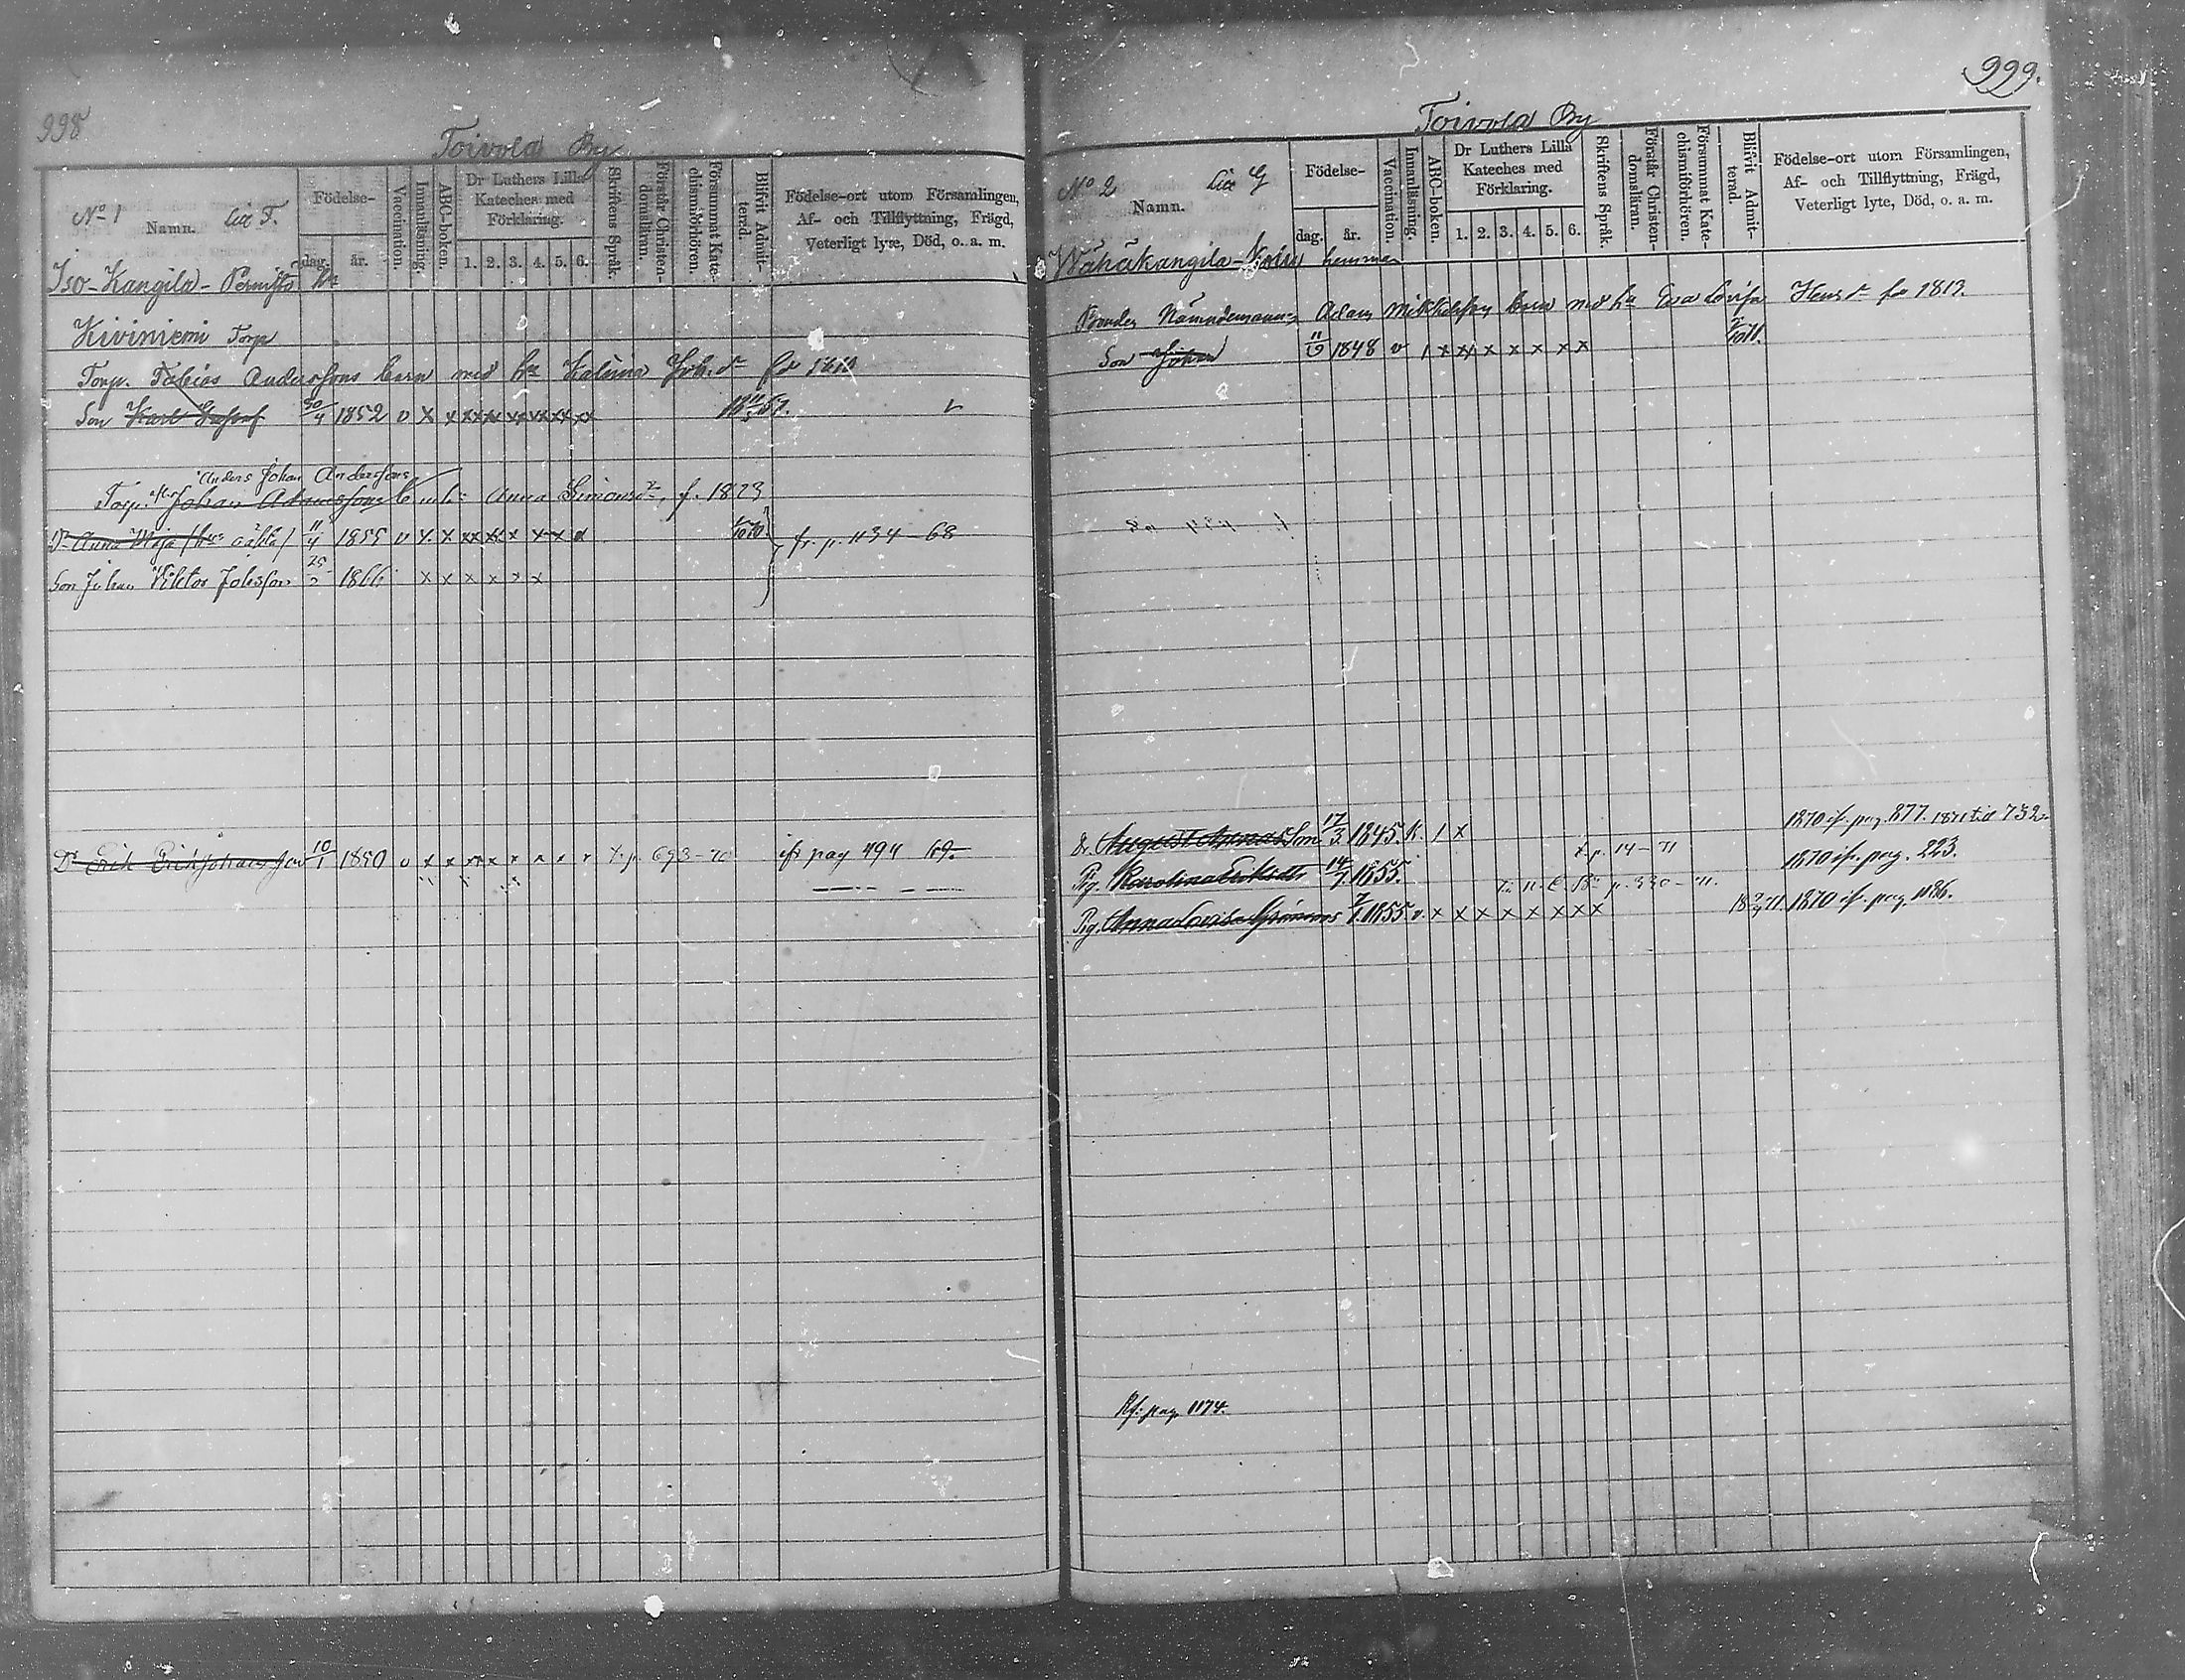 998
Toivola By
No 1
Litt F.
Namn.
Födelse-
dag.
år.
Vaccination.
Innanläsning.
ABC-boken.
Dr Luthers Lilla
Kateches med
Förklaring.
1. 2. 3. 4. 5. 6.
Skriftens Språk.
Förstår Christen-
domsläran.
Försummat Kate-
chismiförhören.
Blifvit Admit-
terad.
Födelse-ort utom Församlingen,
Af- och Tillflyttning, Frägd,
Veterligt lyte, Död, o. a. m.
Iso-Kangila-Pernistö
Kiviniemi Torp
Torp. Tobias Anderssons barn med hu Katarina Joh. dr
Son Karl Gustaf 30/4 1852 v x x xx xx xx xx xx xx
Anders Johan Anderssons
Torp. Johan Adamssons Anna Simonsdr, f. 1823
Dr Anna Maja 11/4 1855 v x x xx xx x x x fr. p. 1134-68
Son Johan Viktor 25/2 1866 x x x x x x
Dr Erik Erik Johansson 10/1 1850 v x x xx x x x x x t. p. 693-70 ifr pag 494 69.
999.
Toivola By
No 2
Litt G
Namn.
Födelse-
dag.
år.
Vaccination.
Innanläsning.
ABC-boken.
Dr Luthers Lilla
Kateches med
Förklaring.
1. 2. 3. 4. 5. 6.
Skriftens Språk.
Förstår Christen-
domsläran.
Försummat Kate-
chismiförhören.
Blifvit Admit-
terad.
Födelse-ort utom Församlingen,
Af- och Tillflyttning, Frägd,
Veterligt lyte, Död, o. a. m.
Wähäkangila hemman
Bonden Nämndemannen Adam Mikkelsson barn med hu Eva Lovisa Henrdr 1813.
Son Johan 11/9 1848 v / x xx x x x x x
Dr. August 17/3 1845. K. / x t. p. 14-71 1870 if. pag. 877. 1871 till 732
Pig. Karolina Eriksdtr 14/7 1855. p. 330-71. 1870 if. pag. 223.
Pig. Anna Lovisa 1855 v. x x x x x x x x 1870 if. pag. 1186.
Rf. pag. 1174.